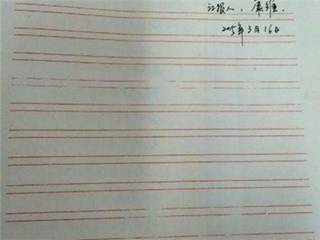 汇报人：廉维
2015年3月16日